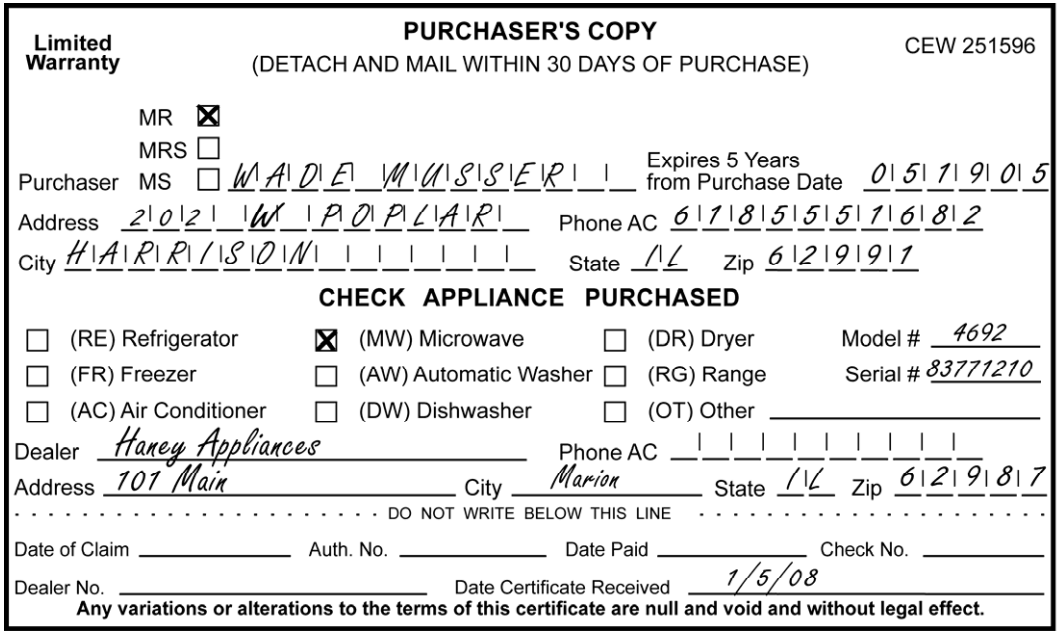 Limited Warranty
PURCHASER'S COPY
CEW 251596
(DETACH AND MAIL WITHIN 30 DAYS OF PURCHASE)
MR
MRS
Purchaser MS WADE MUSSER Expires 5 Years from Purchase Date 051905
Address 202 W POPLAR Phone AC 6185551682
City HARRISON State IL Zip 62991
CHECK APPLIANCE PURCHASED
(RE) Refrigerator (MW) Microwave (DR) Dryer Model # 4692
(FR) Freezer (AW) Automatic Washer (RG) Range Serial # 83771210
(AC) Air Conditioner (DW) Dishwasher (OT) Other
Dealer Haney Appliances Phone AC
Address 101 Main City Marion State IL Zip 62987
DO NOT WRITE BELOW THIS LINE
Date of Claim Auth. No. Date Paid Check No.
Dealer No. Date Certificate Received 1/5/08
Any variations or alterations to the terms of this certificate are null and void and without legal effect.